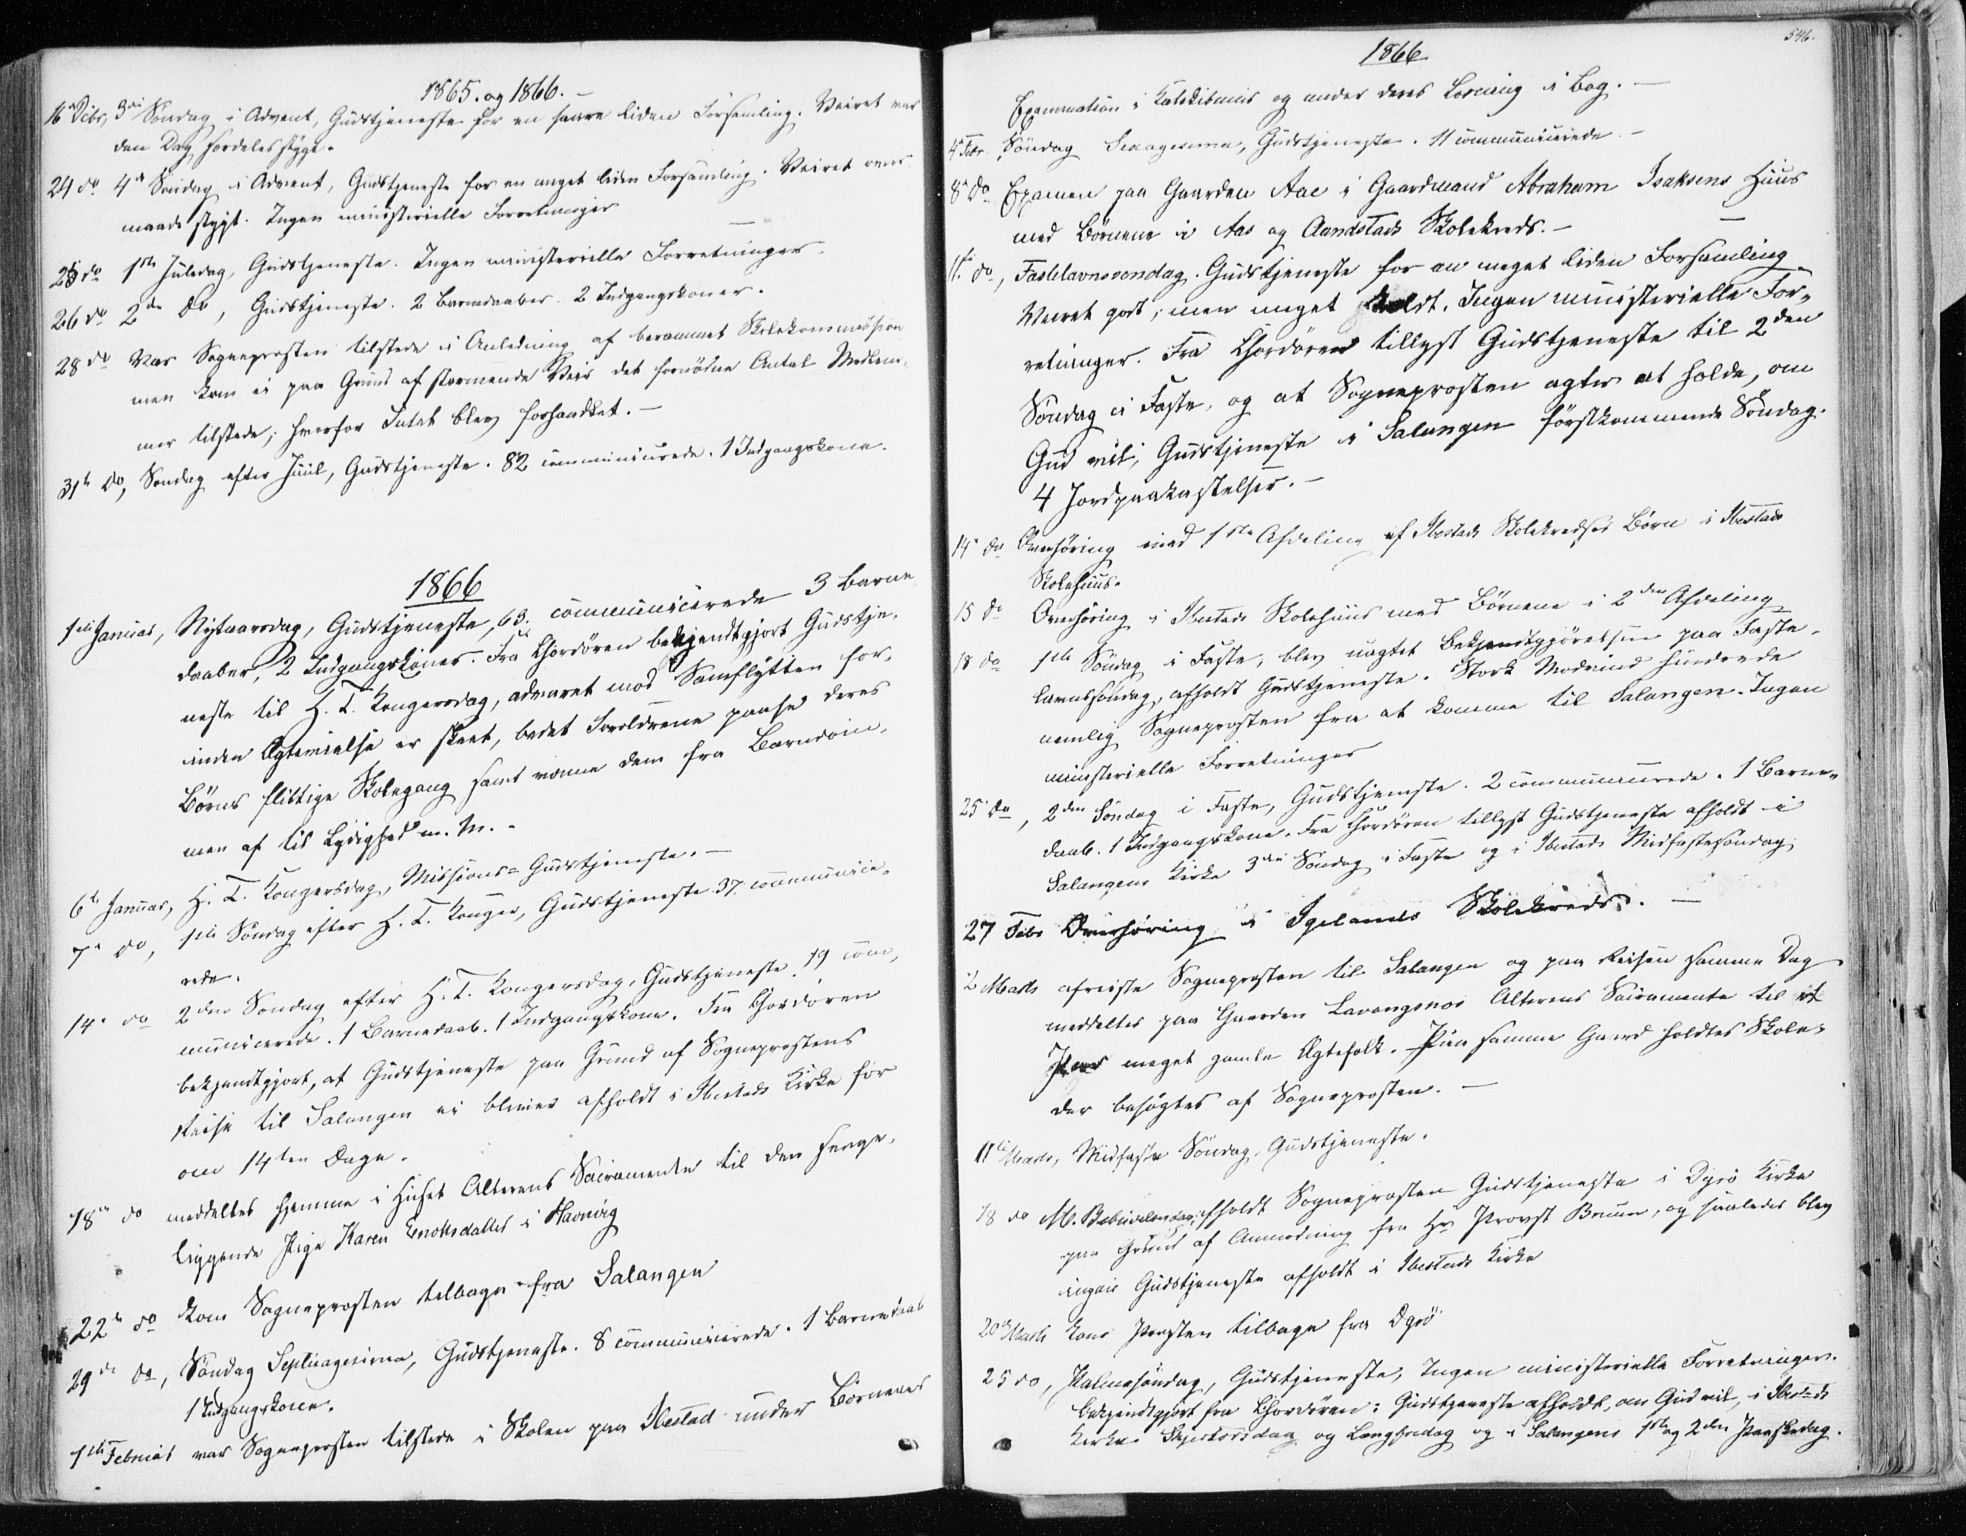 1865. og 1866. —
16de Decbr, 3die Søndag i Advent, Gudstjeneste for en saare liden Forsamling. Veiret var
den Dag særdeles stygt.
24 do 4de Søndag i Advent, Gudstjeneste for en meget liden Forsamling. Veiret over-
maade stygt. Ingen ministerielle Forretninger
25 do 1ste Juledag, Gudstjeneste. Ingen ministerielle Forretninger.
26 do 2den do, Gudstjeneste. 2 Barnedaaber. 2 Indgangskoner.
28 do Var Sogneprosten tilstede i Anledning af berammet Skolekommission
men kom ei paa Grund af stormende Veir det fornødne Antal Medlem-
mer tilstede; hvorfor Intet blev forhandlet. —
31te do, Søndag efter Juul, Gudstjeneste. 82 communicerede. 1 Indgangskone.
1866
1ste Januar, Nytaarsdag, Gudstjeneste, 63. communicerede 3 Barne
daaber, 2 Indgangskoner. Fra Chordøren bekjendtgjort Gudstje-
neste til H. T. Kongersdag, advaret mod Samflytten for-
inden Ægtevielse er skeet, bedet Forældrene paase deres
Børns flittige Skolegang samt vænne dem fra Barndom-
men af til Lydighed m. M. -
6te Januar, H. T. Kongersdag, Missions-Gudstjeneste. —
7de do, 1ste Søndag efter H. T. Konger, Gudstjeneste 37 communice-
rede.
14de do 2den Søndag efter H. T. Kongersdag, Gudstjeneste. 19 com-
municerede. 1 Barnedaab. 1 Indgangskone. Fra Chordøren
bekjendtgjort, at Gudstjeneste paa Grund af Sogneprostens
Reise til Salangen ei bliver afholdt i Ibestads Kirke før
om 14ten Dage.
18de do meddeltes hjemme i Huset Alterens Sacramente til den senge-
liggende Pige Karen Enoksdatter i Havnvig
22de do kom Sogneprosten tilbage fra Salangen
29de do, Søndag Septuagesima, Gudstjeneste. 8 communicerede. 1 Barnedaab
1 Indgangskone.
1ste Februar var Sogneprosten tilstede i Skolen paa Ibestad under Børnenes
546.
1866
Examination i Katekismus og under deres Læsning i Bog. —
4de Febr. Søndag Sexagesima, Gudstjeneste. 11 communicerede —
8de do Examen paa Gaarden Aae i Gaardmand Abraham Isaksens Huus
med Børnene i Aas og Aandstads Skolekreds. —
11te do, Fastelavnssøndag. Gudstjeneste for en meget liden Forsamling
Veiret godt, men meget koldt. Ingen ministerielle For-
retninger. Fra Chordøren tillyst Gudstjeneste til 2den
Søndag i Faste, og at Sogneprosten agter at holde, om
Gud vil, Gudstjeneste i Salangen førstkommende Søndag.
4 Jordpaakastelser. —
14de do Overhøring med 1ste Afdeling af Ibestads Skolekredses Børn i Ibestads
Skolehuus.
15 do Overhøring i Ibestads Skolehuus med Børnene i 2den Afdeling
18 do 1ste Søndag i Faste, blev nagtet Bekjendtgjørelsen paa Faste-
lavnssøndag, afholdt Gudstjeneste. Stærk Modvind hindrede
nemlig Sogneprosten fra at komme til Salangen. Ingen
ministerielle Forretninger
25 do, 2den Søndag i Faste, Gudstjeneste. 2 communicerede. 1 Barne-
daab. 1 Indgangskone. Fra Chordøren tillyst Gudstjeneste afholdt i
Salangens Kirke 3die Søndag i Faste og i Ibestads Midfastesøndag.
27 Febr Overhøring i Igelands Skolekreds. —
2 Marts afreiste Sogneprosten til Salangen og paa Reisen samme Dag
meddeltes paa Gaarden Lavangsnæs Alterens Sacramente til et
Par meget gamle Ægtefolk. Paa samme Gaard holdtes Skole,
der besøgtes af Sogneprosten. —
11te Marts, Midfaste Søndag, Gudstjeneste.
18 do M. Bebudelsesdag, afholdt Sogneprosten Gudstjeneste i Dyrø Kirke
paa Grund af Anmodning fra Hr Provst Bruun, og saaledes blev
ingen Gudstjeneste afholdt i Ibestads Kirke
20de Marts kom Prosten tilbage fra Dyrø
25 do, Palmesøndag, Gudstjeneste, Ingen ministerielle Forretninger.
Bekjendtgjort fra Chordøren: Gudstjeneste afholdt, om Gud vil, i Ibestads
Kirke Skjertorsdag og Langfredag og i Salangens 1ste og 2den Paaskedag.